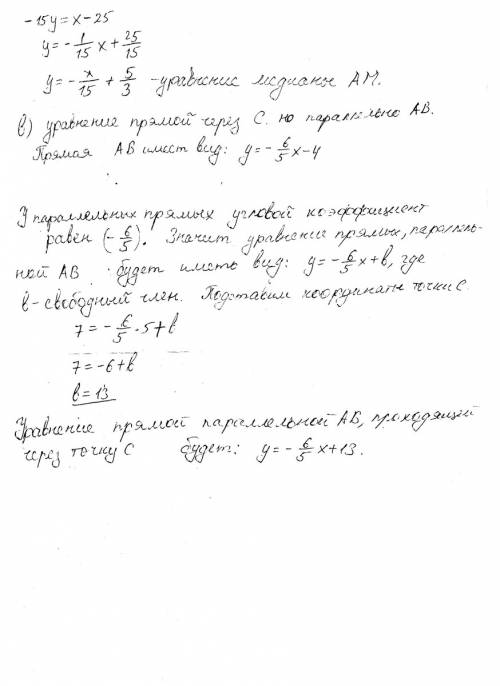 -15y = x - 25
y = - 1/15 x + 25/15
y = - x/15 + 5/3 - уравнение медианы АМ.
в) уравнение прямой через С. но параллельно АВ.
Прямая АВ имеет вид: y = - 6/5 x - 4
У параллельных прямых угловой коэффициент
равен (- 6/5). Значит уравнение прямых, параллель-
ной АВ будет иметь вид: y = - 6/5 x + b, где
b - свободный член. Подставим координаты точки С.
7 = - 6/5 · 5 + b
7 = -6 + b
b = 13
Уравнение прямой параллельной АВ, проходящей
через точку С будет: y = - 6/5 x + 13.